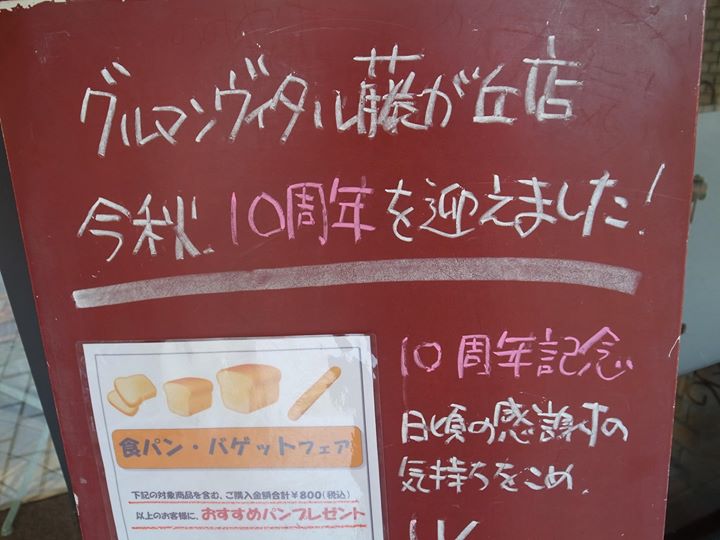 グルマンヴィタル藤が丘店
今秋、10周年を迎えました!
10周年記念
日頃の感謝の
気持ちをこめ
食パン・バゲットフェア
下記の対象商品を含む、ご購入金額合計¥800(税込)
以上のお客様に、おすすめパンプレゼント